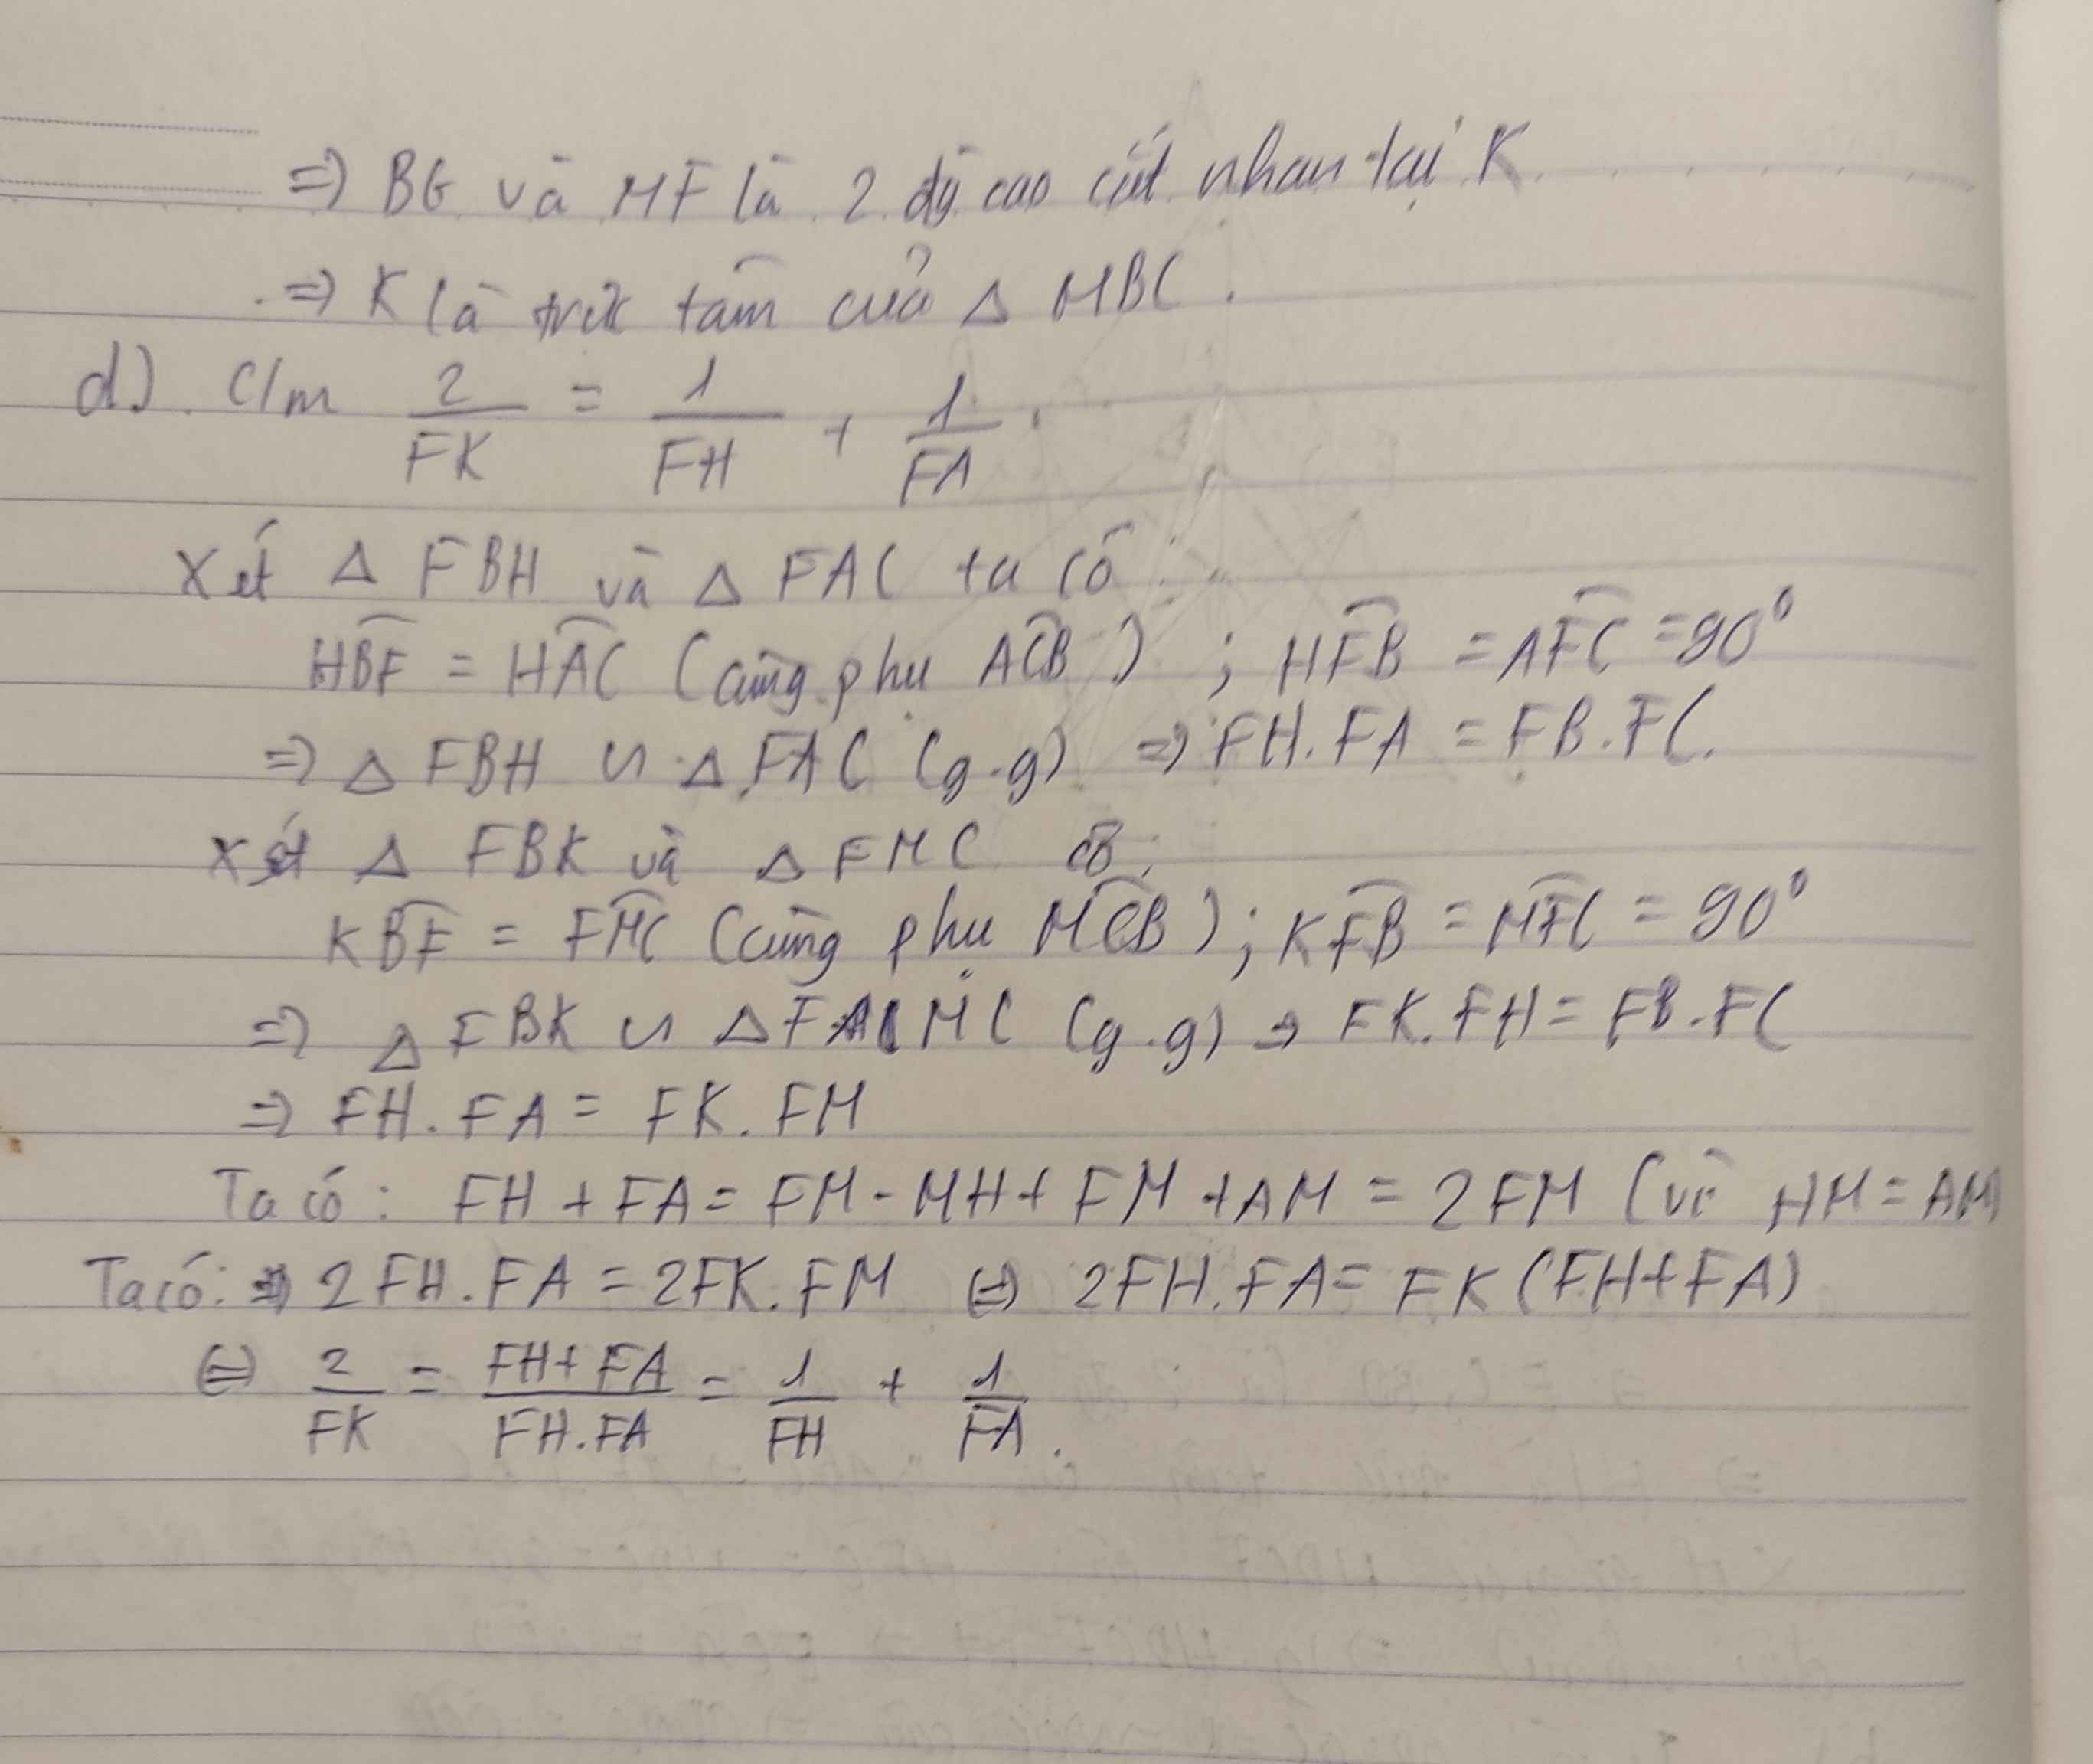 => BG và MF là 2 đg cao cắt nhau tại K
=> K là trực tâm của Δ MBC.
d). C/m 2/FK = 1/FH + 1/FA.
Xét Δ FBH và Δ FAC ta có:
HBF = HAC (cùng phụ ACB) ; HFB = AFC = 90°
=> Δ FBH ∽ Δ FAC (g.g) => FH.FA = FB.FC.
Xét Δ FBK và Δ FMC có:
KBF = FMC (cùng phụ MCB); KFB = MFC = 90°
=> Δ FBK ∽ Δ FMC (g.g) => FK.FH = FB.FC
=> FH.FA = FK.FM
Ta có: FH + FA = FM - MH + FM + AM = 2FM (vì HM = AM)
Ta có: => 2FH.FA = 2FK.FM <=> 2FH.FA = FK(FH+FA)
<=> 2/FK = FH+FA/FH.FA = 1/FH + 1/FA.